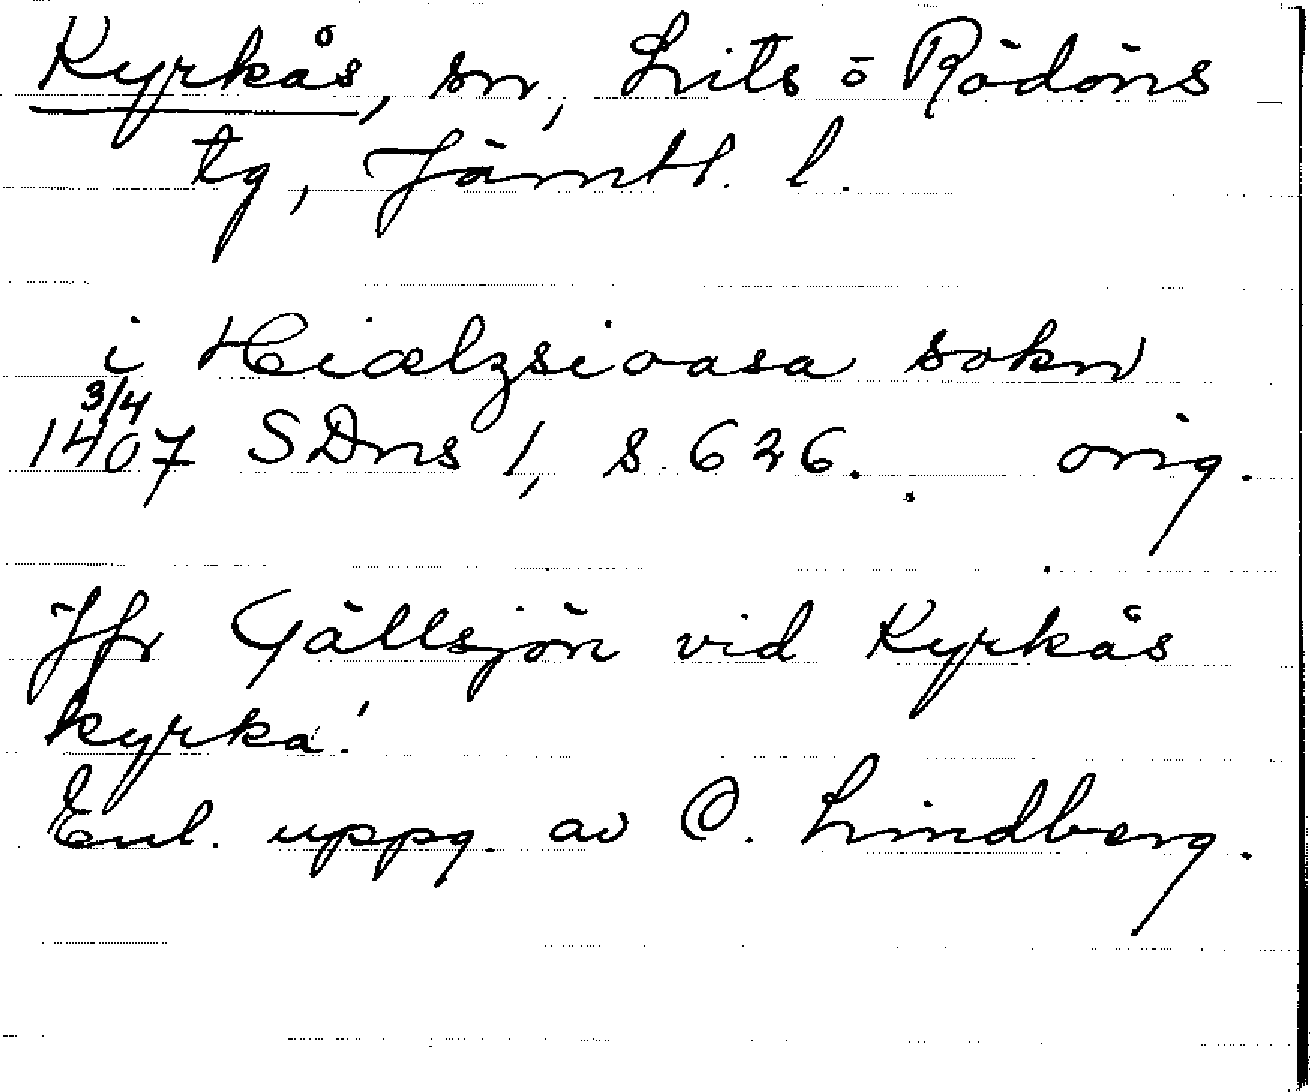 Kyrkås, sn, Lits o Rödöns
tg, Jämtl. l.
i Hiælzsioasa sokn
3/4
1407 SDns 1, s. 626. orig.
Jfr Gällsjön vid Kyrkås
kyrka!
Enl. uppg. av C. Lindberg.